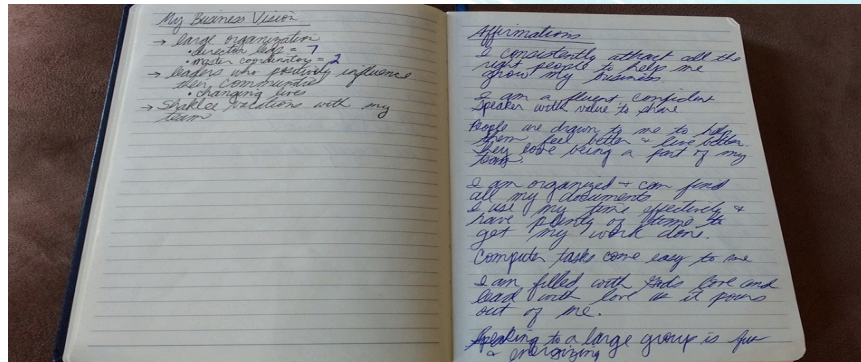 My Business Vision
→ large organization
• director legs = 7
• master coordinators = 2
→ leaders who positively influence
their communities
• changing lives
→ Shaklee vacations with my
team
Affirmations
I consistently attract all the
right people to help me
grow my business
I am a fluent confident
speaker with value to share
People are drawn to me to help
them feel better & live better.
They love being a part of my
team.
I am organized + can find
all my documents
I use my time effectively &
have plenty of time to
get my work done.
Computer tasks come easy to me
I am filled with Gods love and
lead with love as it pours
out of me.
Speaking to a large group is fun
& energizing